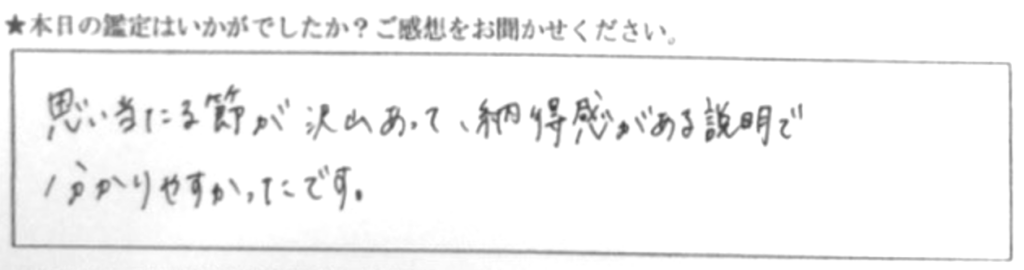 ★本日の鑑定はいかがでしたか？ご感想をお聞かせください。
思い当たる節が沢山あって、納得感がある説明で
分かりやすかったです。